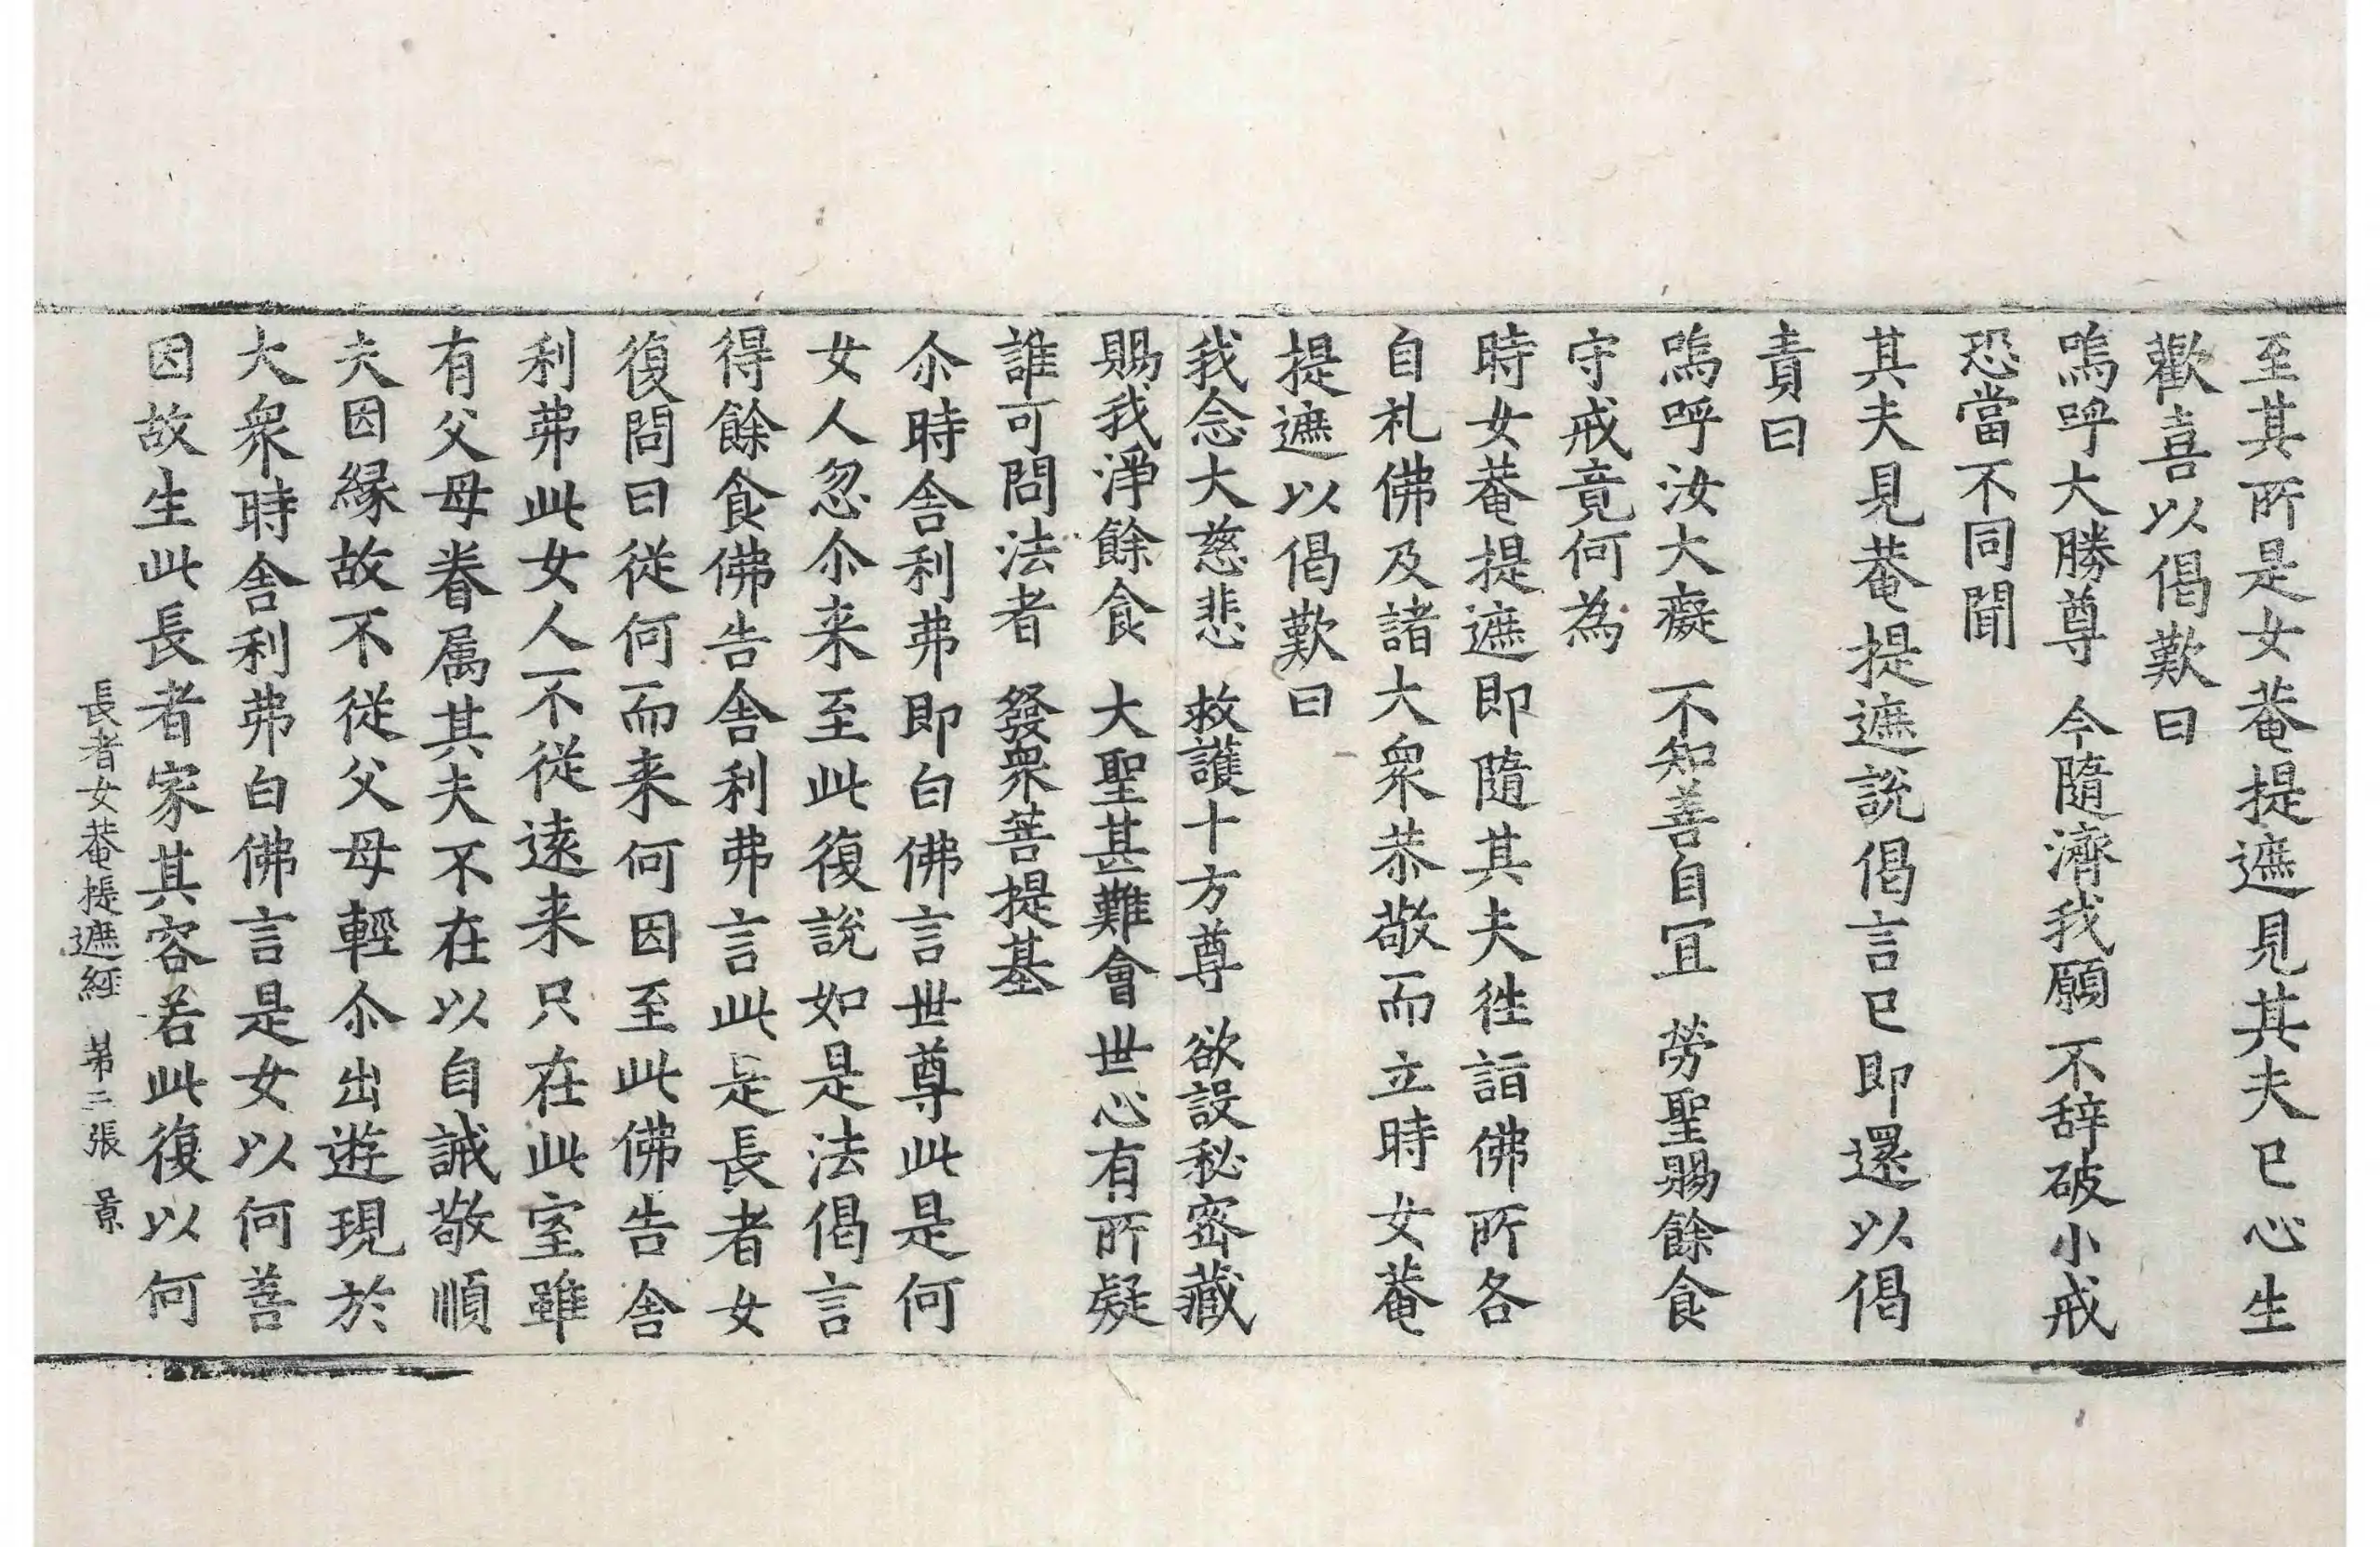 至其所是女菴提遮見其夫已心生
歡喜以偈歎曰
嗚呼大勝尊　今隨濟我願　不辞破小戒
恐當不同聞
其夫見菴提遮說偈言已即還以偈
責曰
嗚呼汝大癡　不知善自冝　勞聖賜餘食
守戒竟何為
時女菴提遮即隨其夫徃詣佛所各
自礼佛及諸大衆恭敬而立時女菴
提遮以偈歎曰
我念大慈悲　救護十方尊　欲設秘密藏
賜我淨餘食　大聖甚難會　世心有所疑
誰可問法者　發衆菩提基
尒時舎利弗即白佛言世尊此是何
女人忽尒来至此復說如是法偈言
得餘食佛告舎利弗言此是長者女
復問曰從何而来何因至此佛告舎
利弗此女人不從遠来只在此室雖
有父母眷属其夫不在以自誡敬順
夫因縁故不從父母輕尒出遊現於
大衆時舎利弗白佛言是女以何善
因故生此長者家其容若此復以何
長者女菴提遮經　苐二張　景